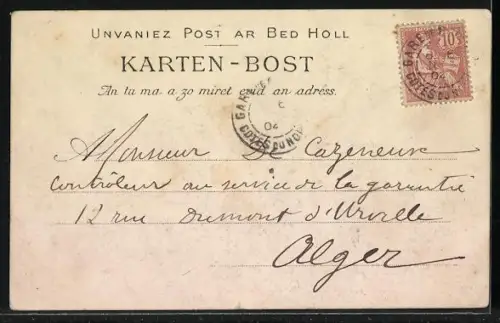 Unvaniez Post ar Bed Holl
KARTEN-BOST
An tu ma a zo miret evid an adress.
10c
GARE
COTES DU NORD
04
GARE
COTES DU NORD
04
A Monsieur D Cazeneuve
Contrôleur au service de la garantie
12 rue Dumont d'Urville
Alger